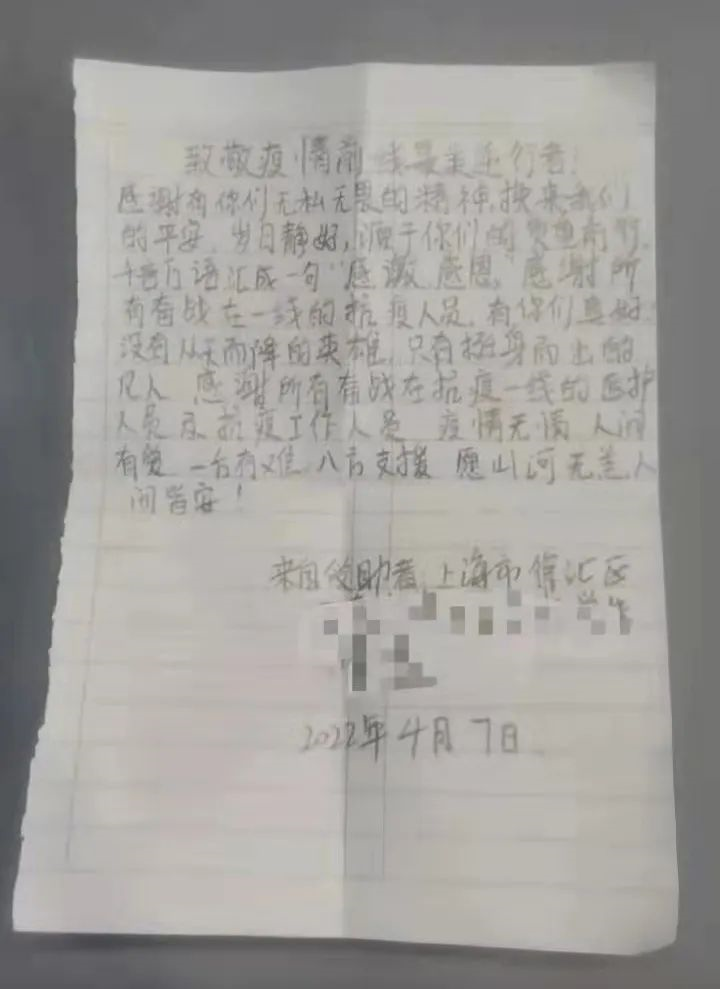 致敬疫情前线最美逆行者!
感谢有你们无私无畏的精神,换来我们
的平安。岁月静好,源于你们的负重前行,
千言万语汇成一句"感激 感恩"感谢所
有奋战在一线的抗疫人员,有你们真好
没有从天而降的英雄,只有挺身而出的
凡人 感谢所有奋战在抗疫一线的医护
人员及抗疫工作人员 疫情无情 人间
有爱 一方有难 八方支援 愿山河无恙人
间皆安!
来自受助者 上海市徐汇区
2022年4月7日